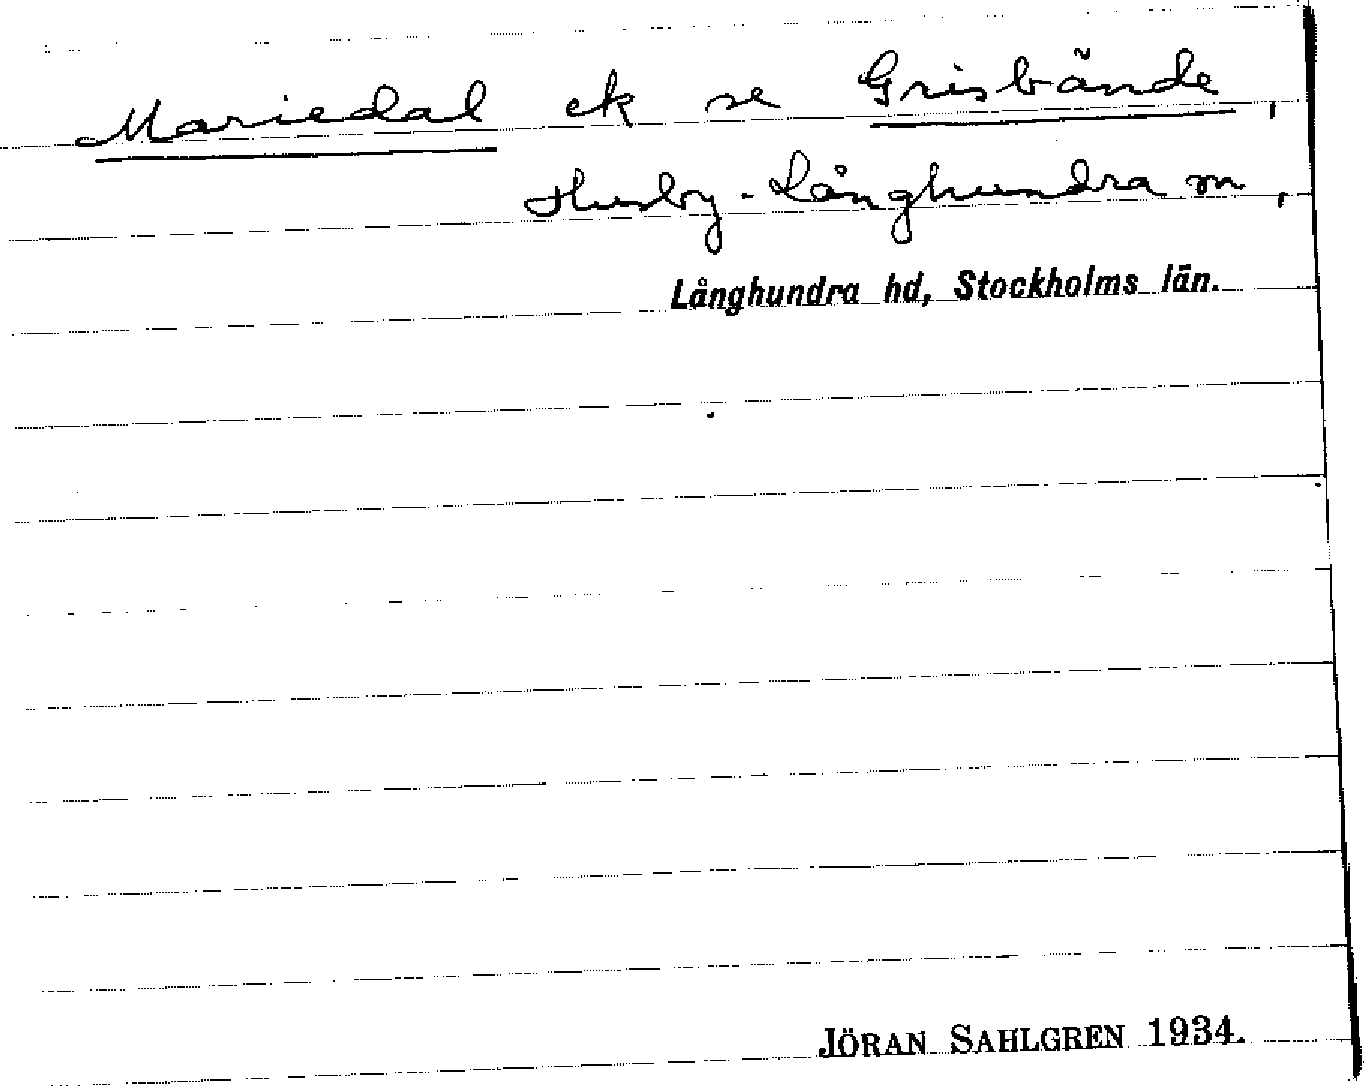 Mariedal ek se Grisbände,
Husby-Långhundra sn,
Långhundra hd, Stockholms län.
JÖRAN SAHLGREN 1934.